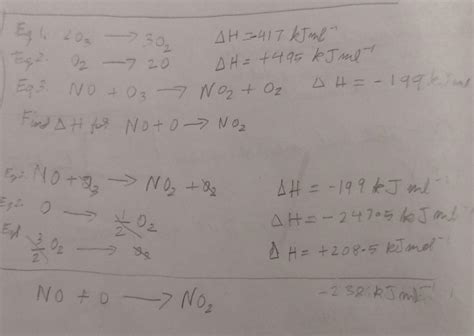 Eq 1. 2O₃ ⟶ 3O₂ ΔH = 417 kJ ml⁻¹
Eq 2. O₂ ⟶ 2O ΔH = +495 kJ ml⁻¹
Eq 3. NO + O₃ ⟶ NO₂ + O₂ ΔH = -199 kJ ml⁻¹
Find ΔH for NO + O ⟶ NO₂
NO + O₃ ⟶ NO₂ + O₂ ΔH = -199 kJ ml⁻¹
O ⟶ 1/2 O₂ ΔH = -247.5 kJ ml⁻¹
3/2 O₂ ⟶ O₃ ΔH = +208.5 kJ mol⁻¹
NO + O ⟶ NO₂ -238 kJ ml⁻¹